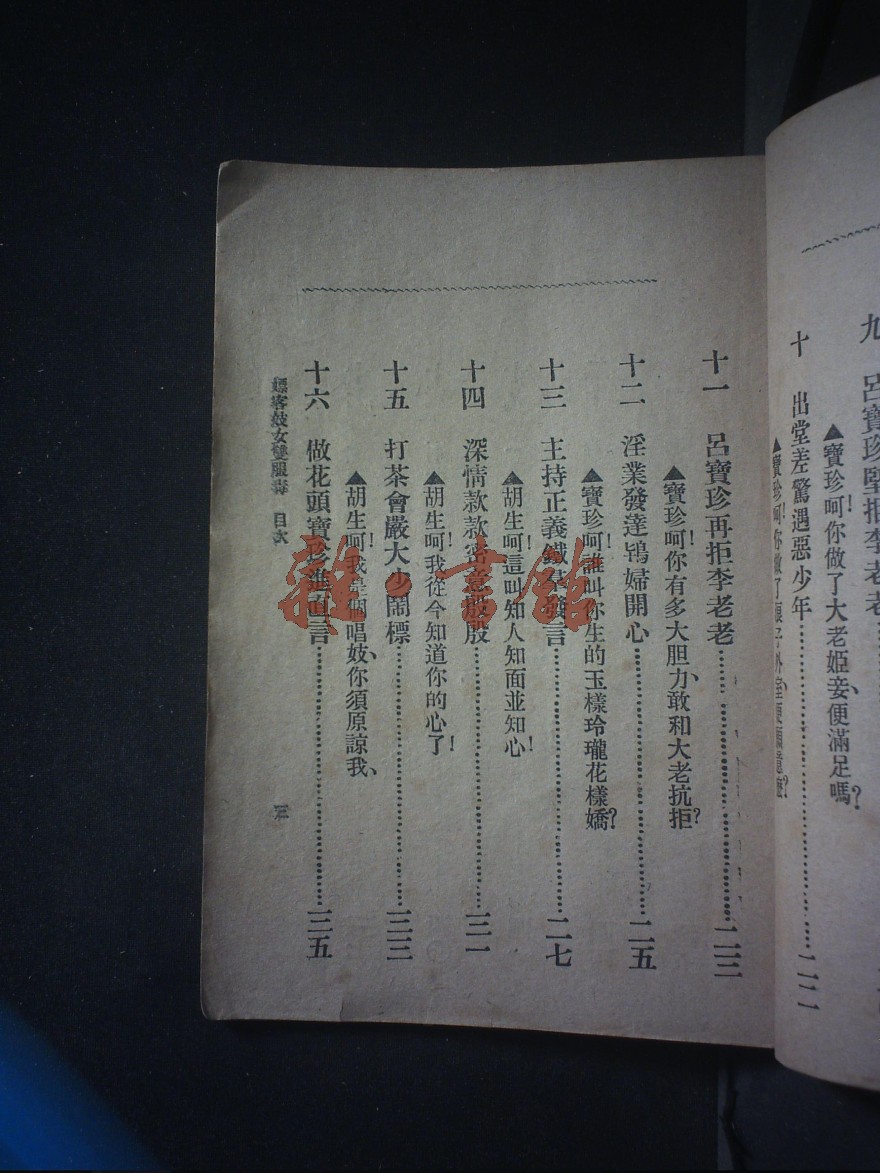 九 呂寶珍堅拒李老老
▲寶珍呵!你做了大老姬妾、便滿足嗎?
十 出堂差驚遇惡少年……二二
▲寶珍呵!你做了
十一 呂寶珍再拒李老老……二三
▲寶珍呵!你有多大胆力、敢和大老抗拒?
十二 淫業發達鴇婦開心……二五
▲寶珍呵!誰叫你生的玉樣玲瓏花樣嬌?
十三 主持正義鐵發言……二七
▲胡生呵!這叫知人知面並知心!
十四 深情款款密意殷殷……三一
▲胡生呵!我從今知道你的心了!
十五 打茶會嚴大少鬧標……三三
▲胡生呵!我是個唱妓、你須原諒我、
十六 做花頭寶珍進直言……三五
嫖客妓女雙服毒 目次
三
雜·書館